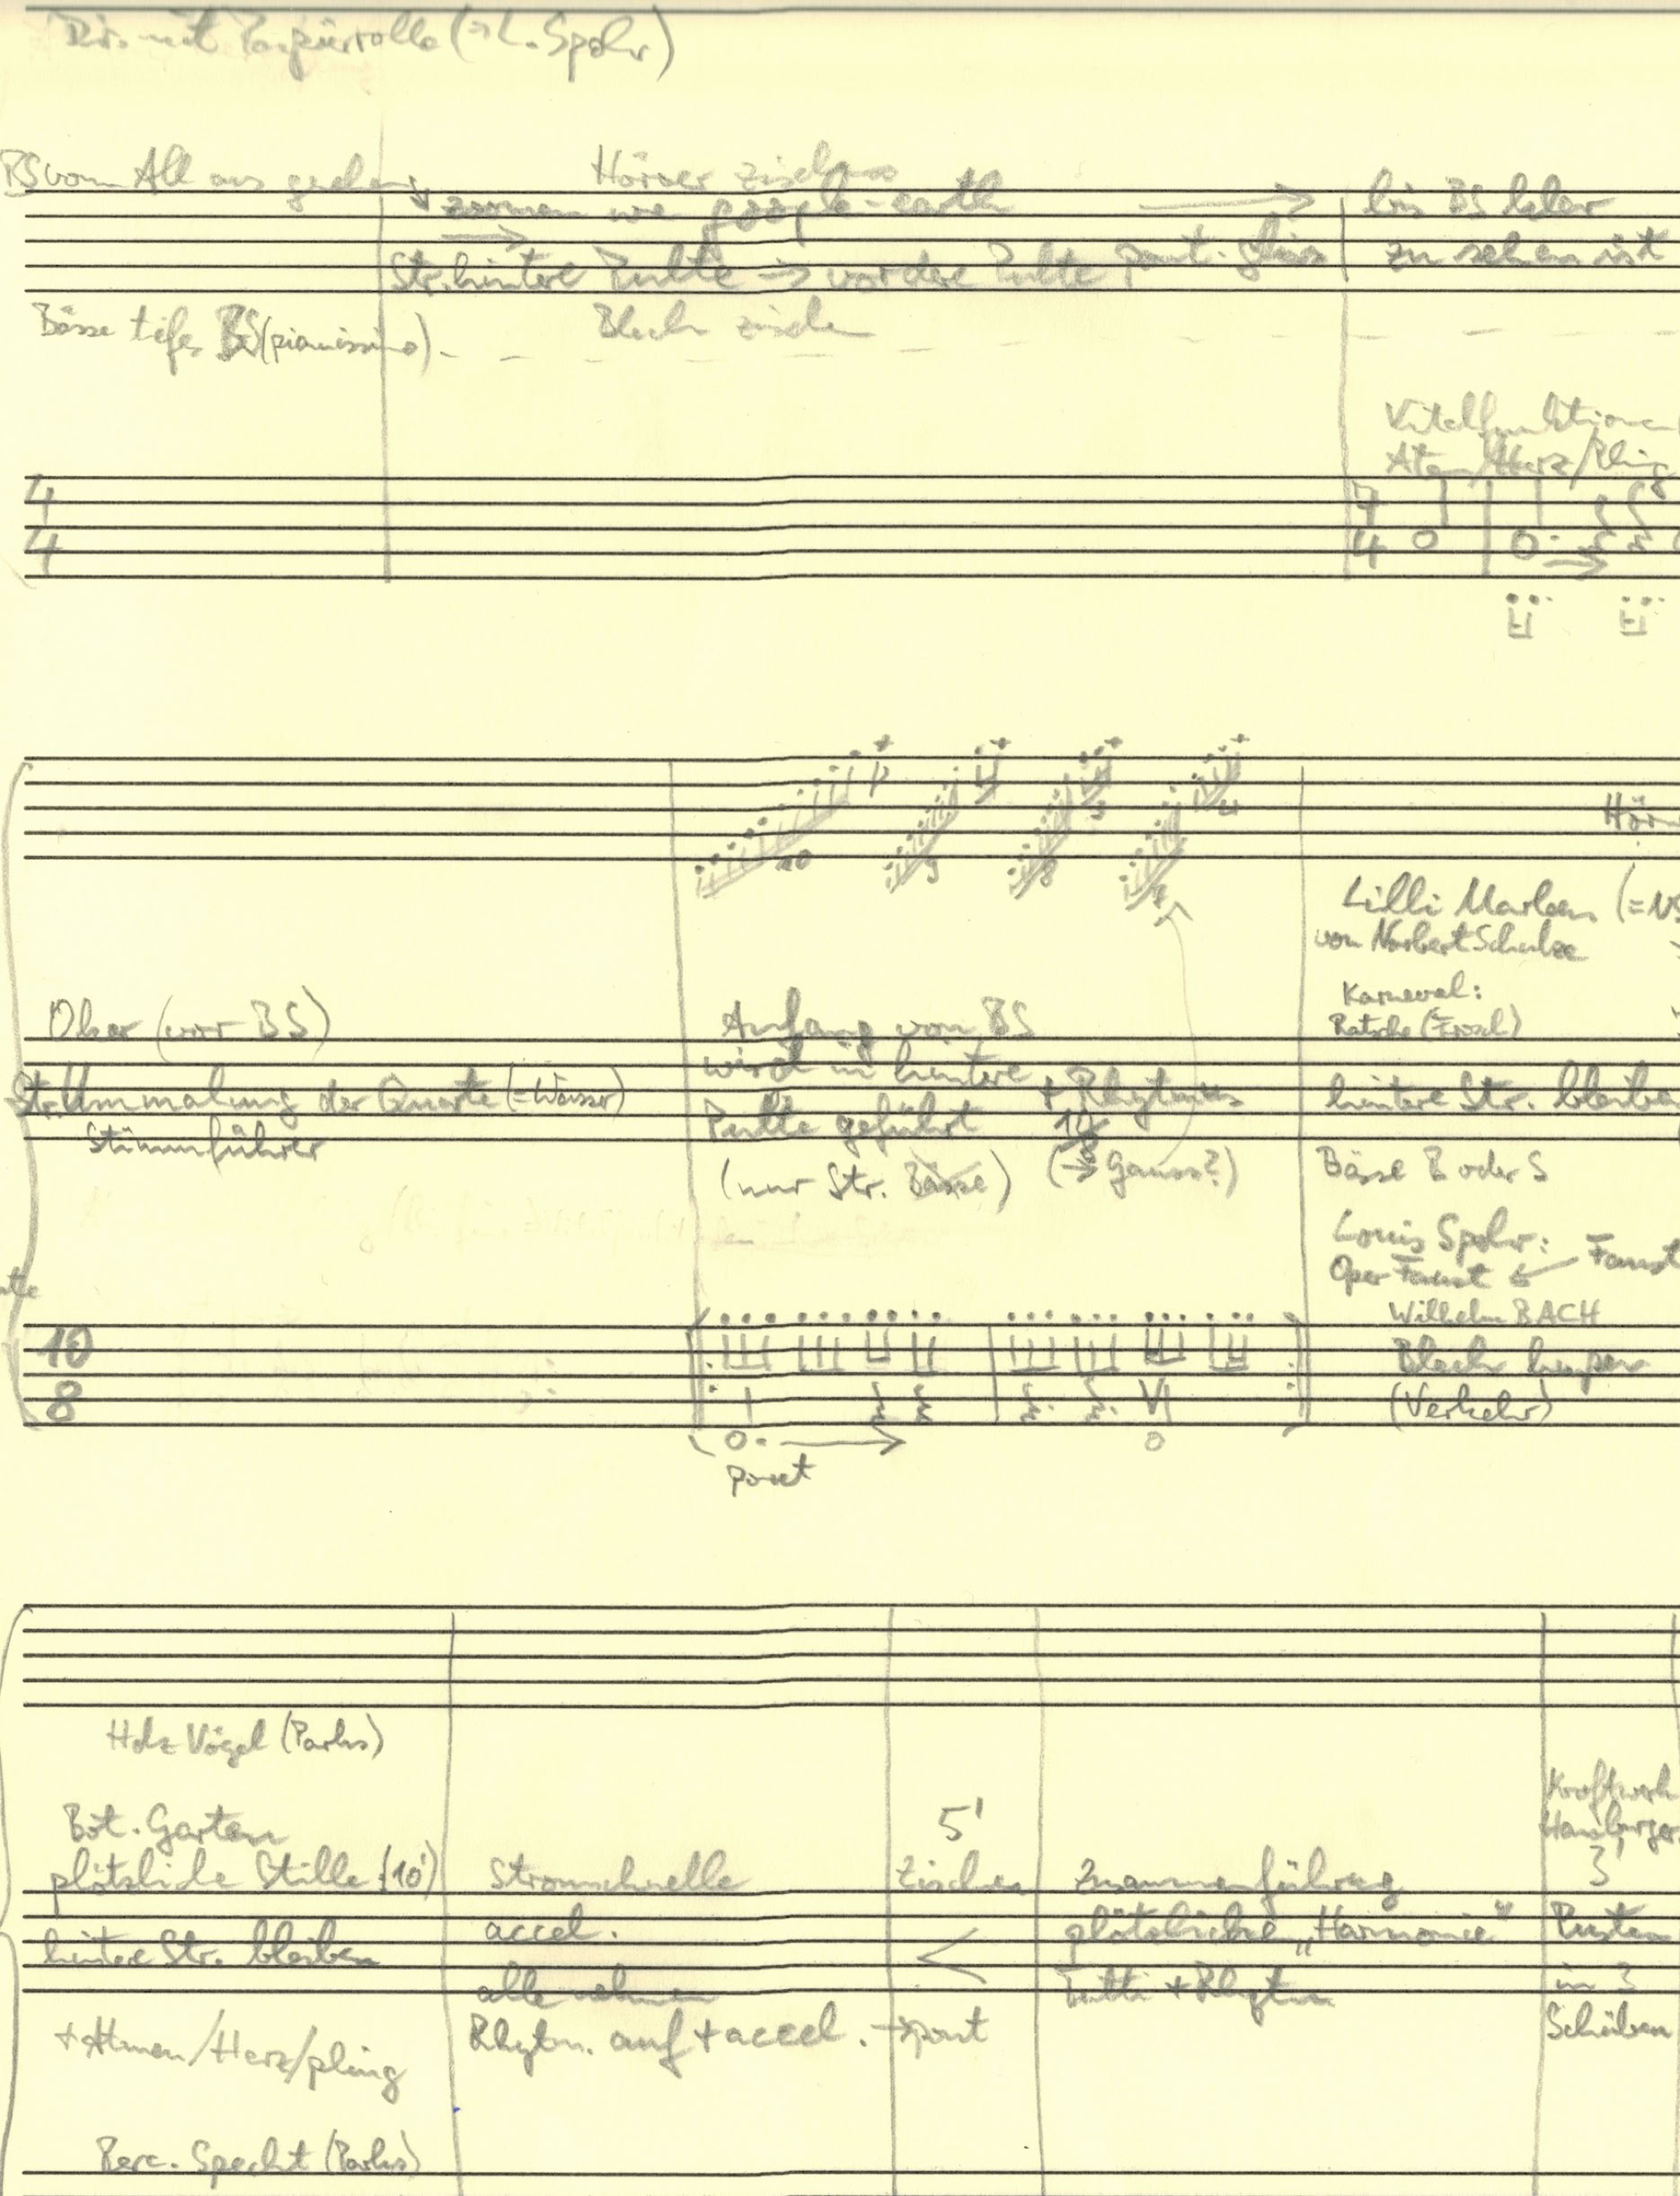 Dir. mit Papierrolle (→ L. Spohr)
BS vom All aus gesehen
Hörner zischen
zoomen wie google-earth
bis BS klar
zu sehen ist
Str. hintere Pulte → vordere Pulte
Bässe tiefes BS (pianissimo)
Blech
Vitalfunktionen
Atem/Herz/Pling
4
4
4
10
9
8
Lilli Marleen
von Norbert Schulze
Karneval:
Ratsche (Frosch)
Oker (vor BS)
Anfang von BS
wird in hintere
Pulte geführt
+ Rhythmus
(nur Str. Bässe)
(→ Gauss?)
Str. Ummalung der Quarte (= Wasser)
Stimmführer
hintere Str. bleiben
Bässe B oder S
Louis Spohr:
Oper Faust ← Faust
Wilhelm BACH
Blech hupen
(Verkehr)
10
8
port
Holz Vögel (Parks)
Bot. Garten
plötzliche Stille (10')
hintere Str. bleiben
+ Atmen/Herz/pling
Perc. Specht (Parks)
Stromschnelle
accel.
alle nehmen
Rhytm. auf + accel. → port
5'
Zischen
Zusammenführung
plötzliche „Harmonie"
Tutti + Rhytm
Kraftwerk
Hamburger
3'
Pusten
in
Scheiben